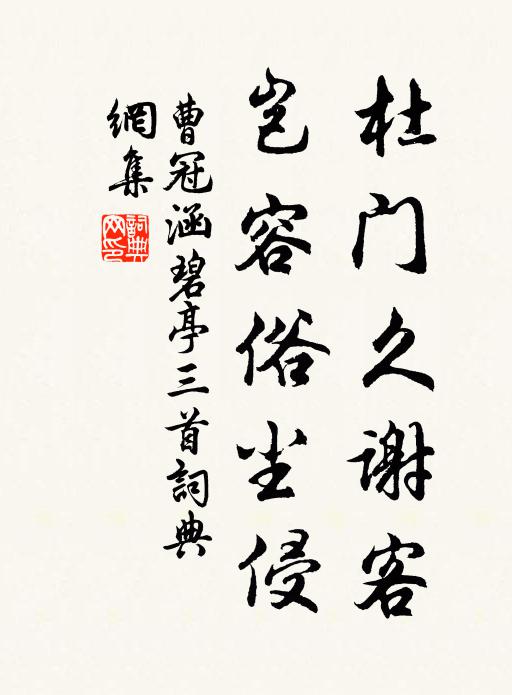 杜门久谢客
岂容俗尘侵
曹冠涵碧亭三首詞典
網集
詞典
网印